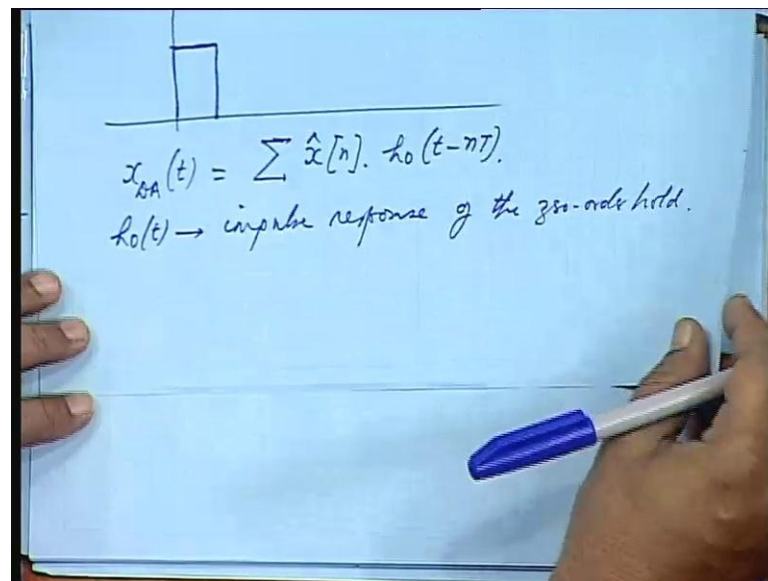 x_DA(t) = ∑ x̂[n]. h₀(t-nT).
h₀(t) → impulse response of the zero-order hold.